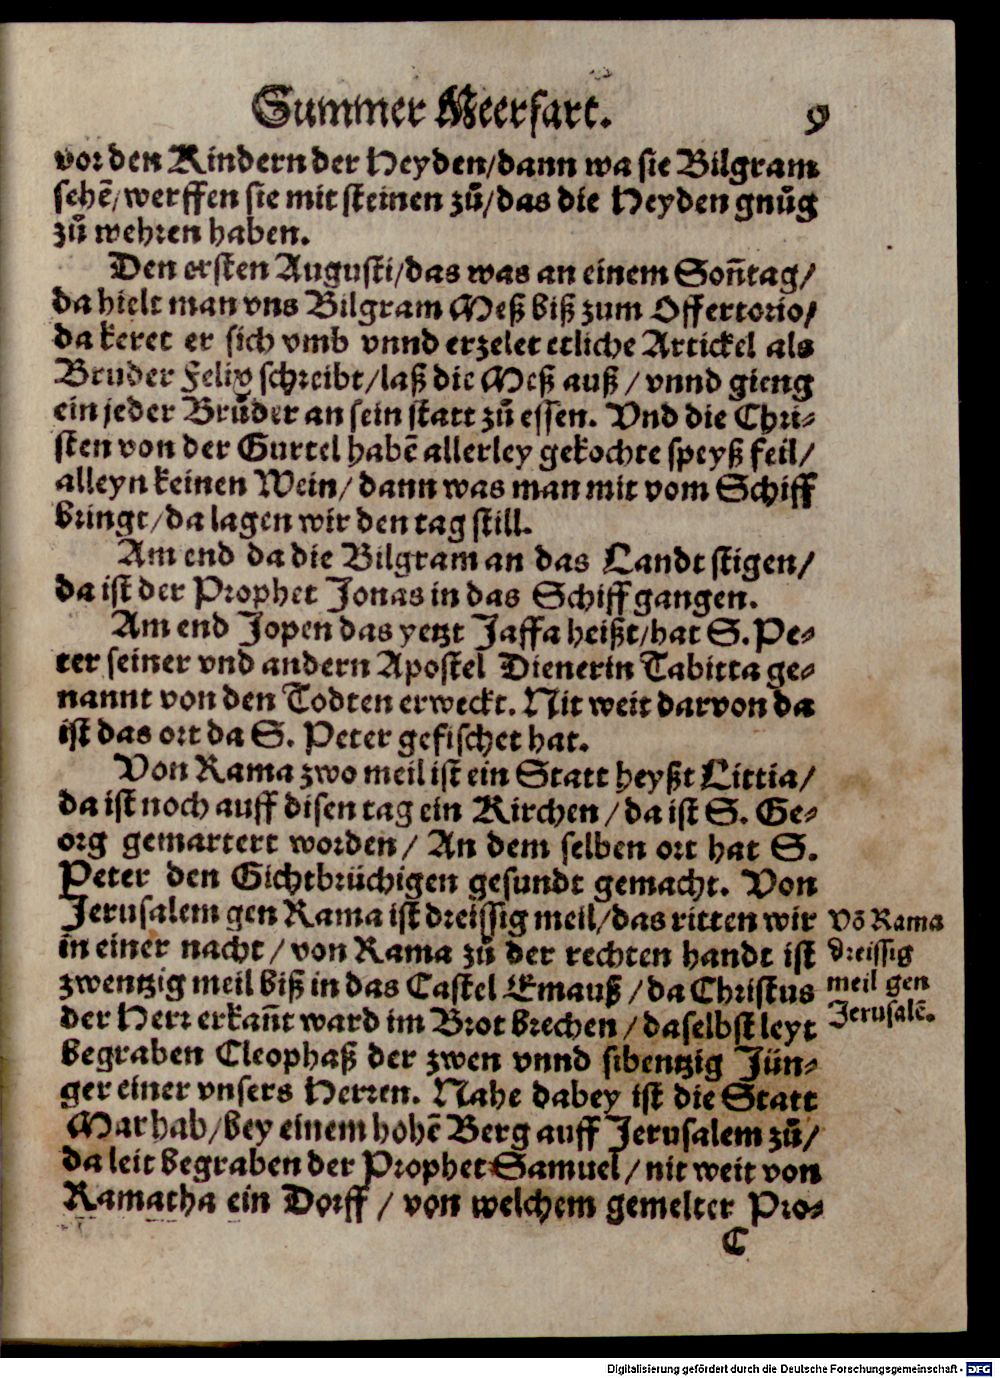 Summer Meerfart. 9
vor den Kindern der Heyden/dann wa sie Bilgram
sehē/werffen sie mit steinen zů/das die Heyden gnůg
zů wehren haben.
Den ersten Augusti/das was an einem Soñtag/
da hielt man vns Bilgram Meß biß zum Offertorio/
da keret er sich vmb vnnd erzelet etliche Artickel als
Bruder Felix schreibt/laß die Meß auß/vnnd gieng
ein jeder Brůder an sein statt zů essen. Vnd die Chri-
sten von der Gurtel habē allerley gekochte speyß feil/
alleyn keinen Wein/dann was man mit vom Schiff
bringt/da lagen wir den tag still.
Am end da die Bilgram an das Landt stigen/
da ist der Prophet Jonas in das Schiff gangen.
Am end Jopen das yetzt Jaffa heißt/hat S. Pe-
ter seiner vnd andern Apostel Dienerin Tabitta ge-
nannt von den Todten erweckt. Nit weit darvon da
ist das ort da S. Peter gefischet hat.
Von Rama zwo meil ist ein Statt heyßt Littia/
da ist noch auff disen tag ein Kirchen/da ist S. Ge-
org gemartert worden/An dem selben ort hat S.
Peter den Gichtbrüchigen gesundt gemacht. Von
Jerusalem gen Rama ist dreissig meil/das ritten wir
in einer nacht/von Rama zů der rechten handt ist
zwentzig meil biß in das Castel Emauß/da Christus
der Herr erkañt ward im Brot brechen/daselbst leyt
begraben Cleophaß der zwen vnnd sibentzig Jün-
ger einer vnsers Herren. Nahe dabey ist die Statt
Marhab/bey einem hohē Berg auff Jerusalem zů/
da leit begraben der Prophet Samuel/nit weit von
Ramatha ein Dorff/von welchem gemelter Pro-
C
Vō Rama
dreissig
meil gen
Jerusalē.
Digitalisierung gefördert durch die Deutsche Forschungsgemeinschaft - DFG